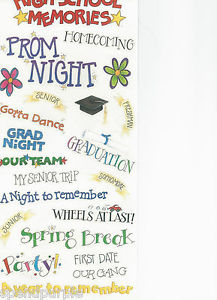 HIGH SCHOOL
MEMORIES
HOMECOMING
PROM
NIGHT
SENIOR
FRESHMAN
Gotta Dance
GRAD
NiGHT
GRADUATION
OUR TEAM
MY SENIOR TRIP
SOPHOMORE
A Night to remember
JUNIOR
WHEELS AT LAST!
Spring Break
Party!
FIRST DATE
OUR GANG
A year to remember